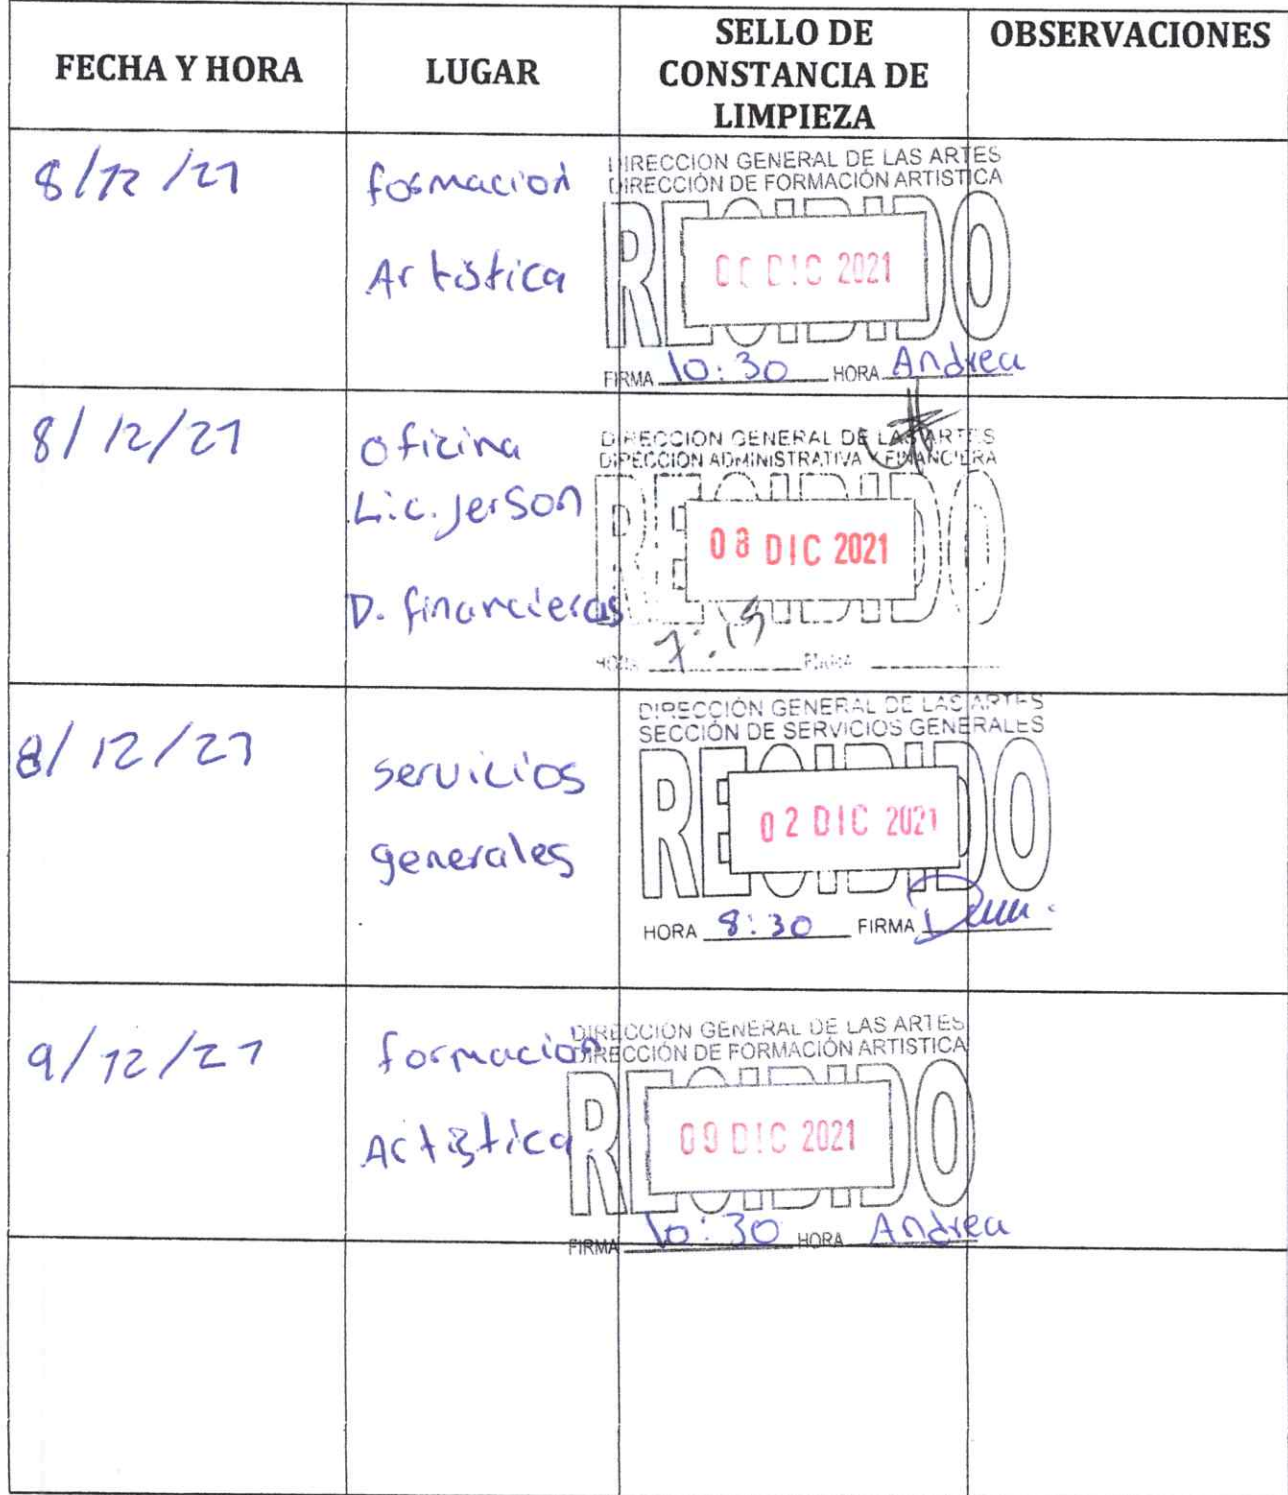 FECHA Y HORA
LUGAR
SELLO DE
CONSTANCIA DE
LIMPIEZA
OBSERVACIONES
8/12/21
formación
Artística
DIRECCION GENERAL DE LAS ARTES
DIRECCIÓN DE FORMACIÓN ARTISTICA
RECIBIDO
DIC 2021
FIRMA 10:30 HORA Andrea
8/12/21
oficina
Lic. Jerson
D. financieras
DIRECCION GENERAL DE LAS ARTES
DIRECCION ADMINISTRATIVA Y FINANCIERA
RECIBIDO
08 DIC 2021
HORA 7:15 FIRMA
8/12/21
servicios
generales
DIRECCIÓN GENERAL DE LAS ARTES
SECCIÓN DE SERVICIOS GENERALES
RECIBIDO
02 DIC 2021
HORA 8:30 FIRMA
9/12/21
formación
Artística
DIRECCIÓN GENERAL DE LAS ARTES
DIRECCIÓN DE FORMACIÓN ARTISTICA
RECIBIDO
09 DIC 2021
FIRMA 10:30 HORA Andrea